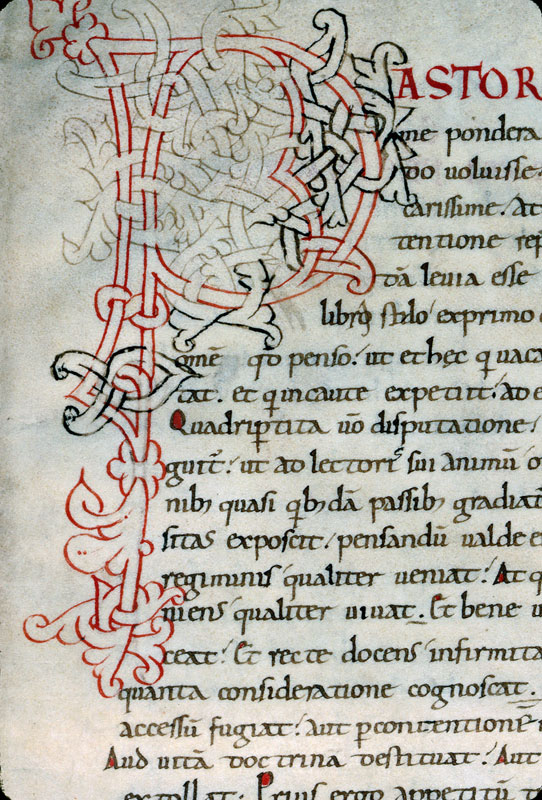 PASTOR
me pondera
do uoluisse
carissime. At
tentione rep̄
dā leuia esse
libr&#42813; stilo exprimo
omē qd̄ penso. ut et hęc q uaca
tat. et q incaute expetiit. ad e
Quadriptita uō disputatione.
guit̄. ut ad lectoris sui animū o
nib; quasi qb;dā passib; gradiat̄
sitas exposcit. pensandū ualde e
regiminis qualiter ueniat. At q
niens qualiter uiuat. Et bene u
ceat. Et recte docens infirmita
quanta consideratione cognoscat.
accessū fugiat. aut pcontentione
Aud uitā doctrina destituat. Aut
extollat. Prius ergo appetitū t